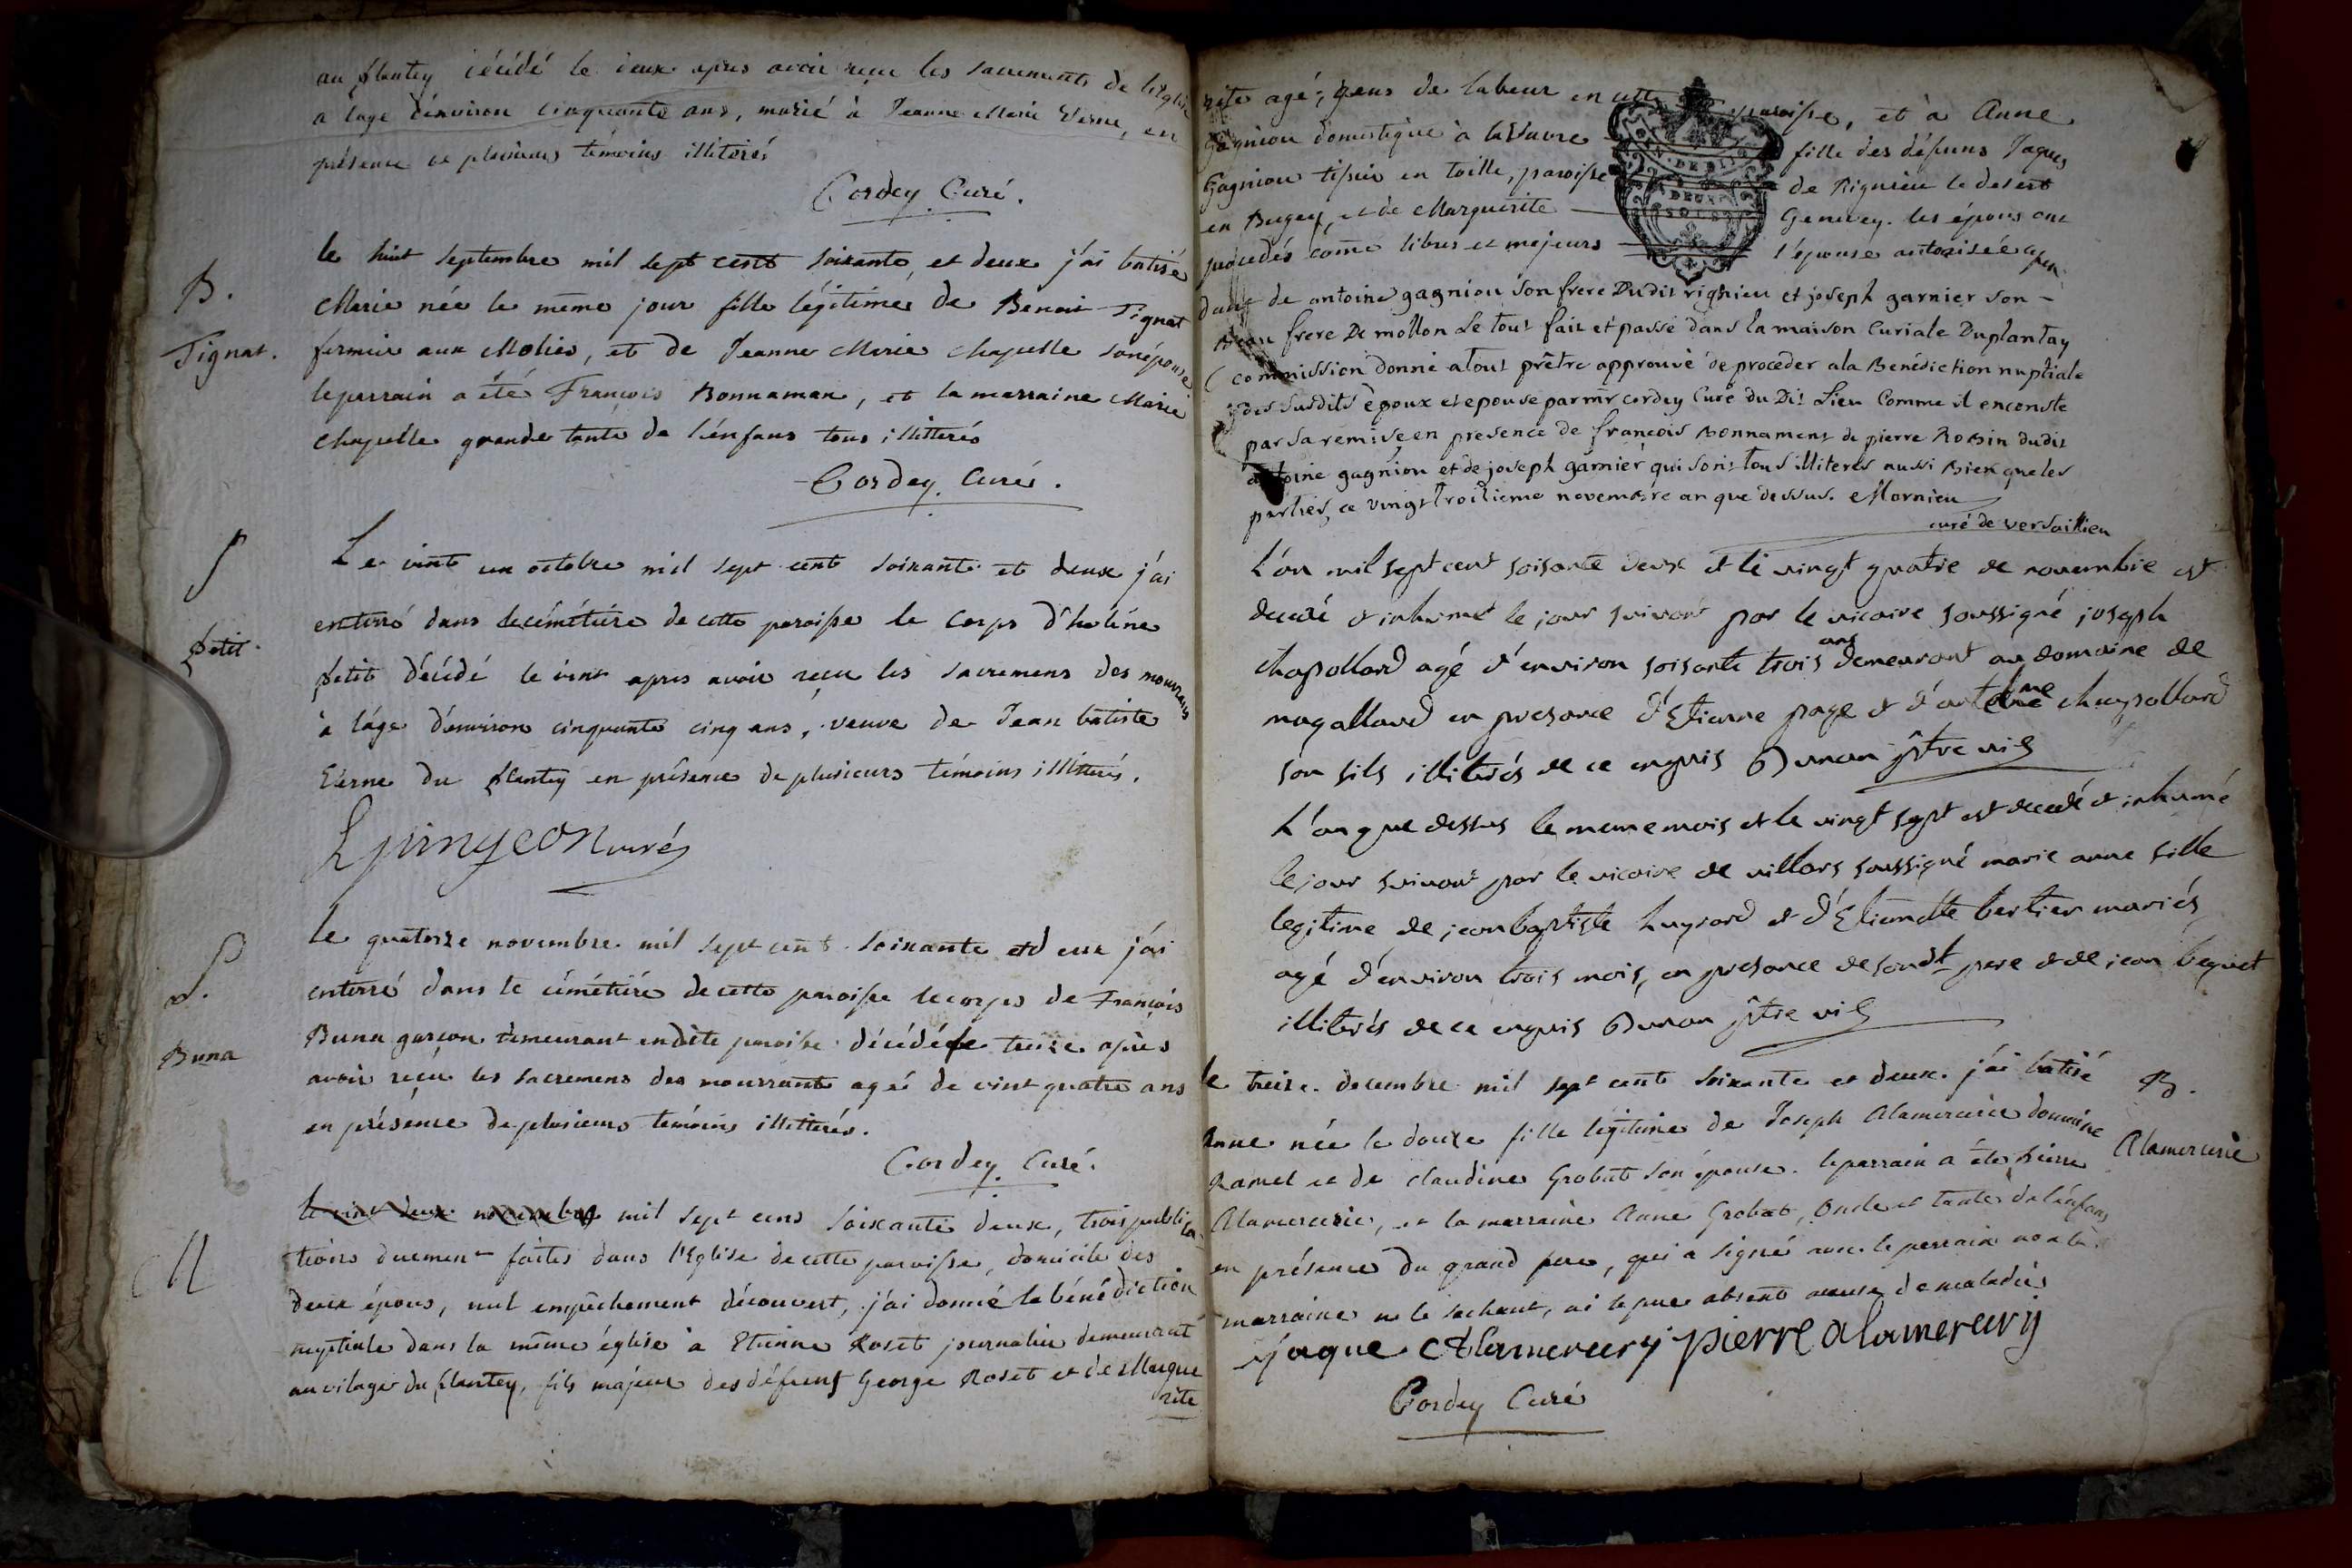 au plantey décédé le deux apres avoir reçu les sacrements de l'église
a l'age d'environ cinquante ans, marié à Jeanne Marie Verne, en
présence de plusieurs témoins illiterés
Cordey Curé.
B.
Tignat.
le huit septembre mil sept cent soixante et deux j'ai batisé
Marie née le même jour fille légitime de Benoit Tignat
fermier aux Molies, et de Jeanne Marie Chapelle son épouse
le parrain a été François Bonnaman, et la marraine Marie
Chapelle grande tante de l'enfans tous illitterés
Cordey Curé.
S
petit.
Le vint un octobre mil sept cent soixante et deux j'ai
enterré dans le cémétiére de cette paroisse le corps d'heléne
petit décédé le vint apres avoir reçu les sacremens des mourrans
à l'áge d'environ cinquante cinq ans, veuve de Jean batiste
Verne du plantey en présence de plusieurs témoins illitterés.
Epingeon curé
S.
Buna
le quatorze novembre mil sept cent soixante et deux j'ai
enterré dans le cémétiére de cette paroisse le corps de François
Buna garçon demeurant en dite paroisse décédé le treize après
avoir reçu les sacremens des mourrants agé de vint quatre ans
en présence de plusieurs témoins illitterés.
Cordey Curé.
M
le vint deux novembre mil sept cens soixante deux, trois publica-
tions duement faites dans l'Eglise de cette paroisse, domicile des
deux épous, nul empêchement découvert, j'ai donné la bénédiction
nuptiale dans la même église à Etienne Roset journalier demeurant
au vilage du plantey, fils majeur des défunts George Roset et de Margue
rite
rite agé, gens de labeur en cette paroisse, et à Anne
Gagniou domestique à la fille des défuns Jaques
Gagniou tissier en toille, paroisse de Rignieu le desert
en Bugey, et de Marguerite Genevey. les épous ont
procedés come libres et majeurs l'épouse autorisée
de antoine gagniou son frere Dudit rignieu et joseph garnier son -
Beau frere De mollon Le tout fait et passé dans la maison Curiale Duplantay
commission donné a tout prêtre approuvé de proceder a la Benédiction nuptiale
des susdits époux et epouse par mr cordey Curé du Dit Lieu Comme il enconste
par sa remise en presence de francois Bonnament de pierre RoBin dudit
antoine gagniou et de joseph garnier qui sont tous illiterés aussi Bien que les
parties, ce vingt troisieme novembre an que dessus. Mornieu
curé de versaillieu
L'an mil sept cent soisante deux et le vingt quatre de novembre est
decedé et inhumé le jour suivant par le vicaire soussigné joseph
chapolland agé d'environ soisante trois ans demeurant au domaine de
magalland en presance d'Etienne page et d'antelme chapolland
son fils illiterés de ce enquis Dunan ptre vic
L'an que dessus le meme mois et le vingt sept est decedé et inhumé
le jour suivant par le vicaire de villars soussigné marie anne fille
legitime de jean baptiste huyrard et d'Etiennette bertier mariés
agé d'environ trois mois, en presance de sondt pere et de jean bequet
illiterés de ce enquis Dunan ptre vic
le treize decembre mil sept cent soixante et deux j'ai batisé
Anne née le douze fille légitime de Joseph Alamercerie domaine
Ramel et de Claudine Grobat son épouse. le parrain a été pierre
Alamercerie, et la marraine Anne Grobat, Oncle et tante de l'énfans
en présence du grand pere, qui a signé avec le parrain non la
marraine ne le sachant, ni le pere absent acause de maladie
B.
Alamercerie
jaque Alamercery pierre alamercery
Cordey Curé